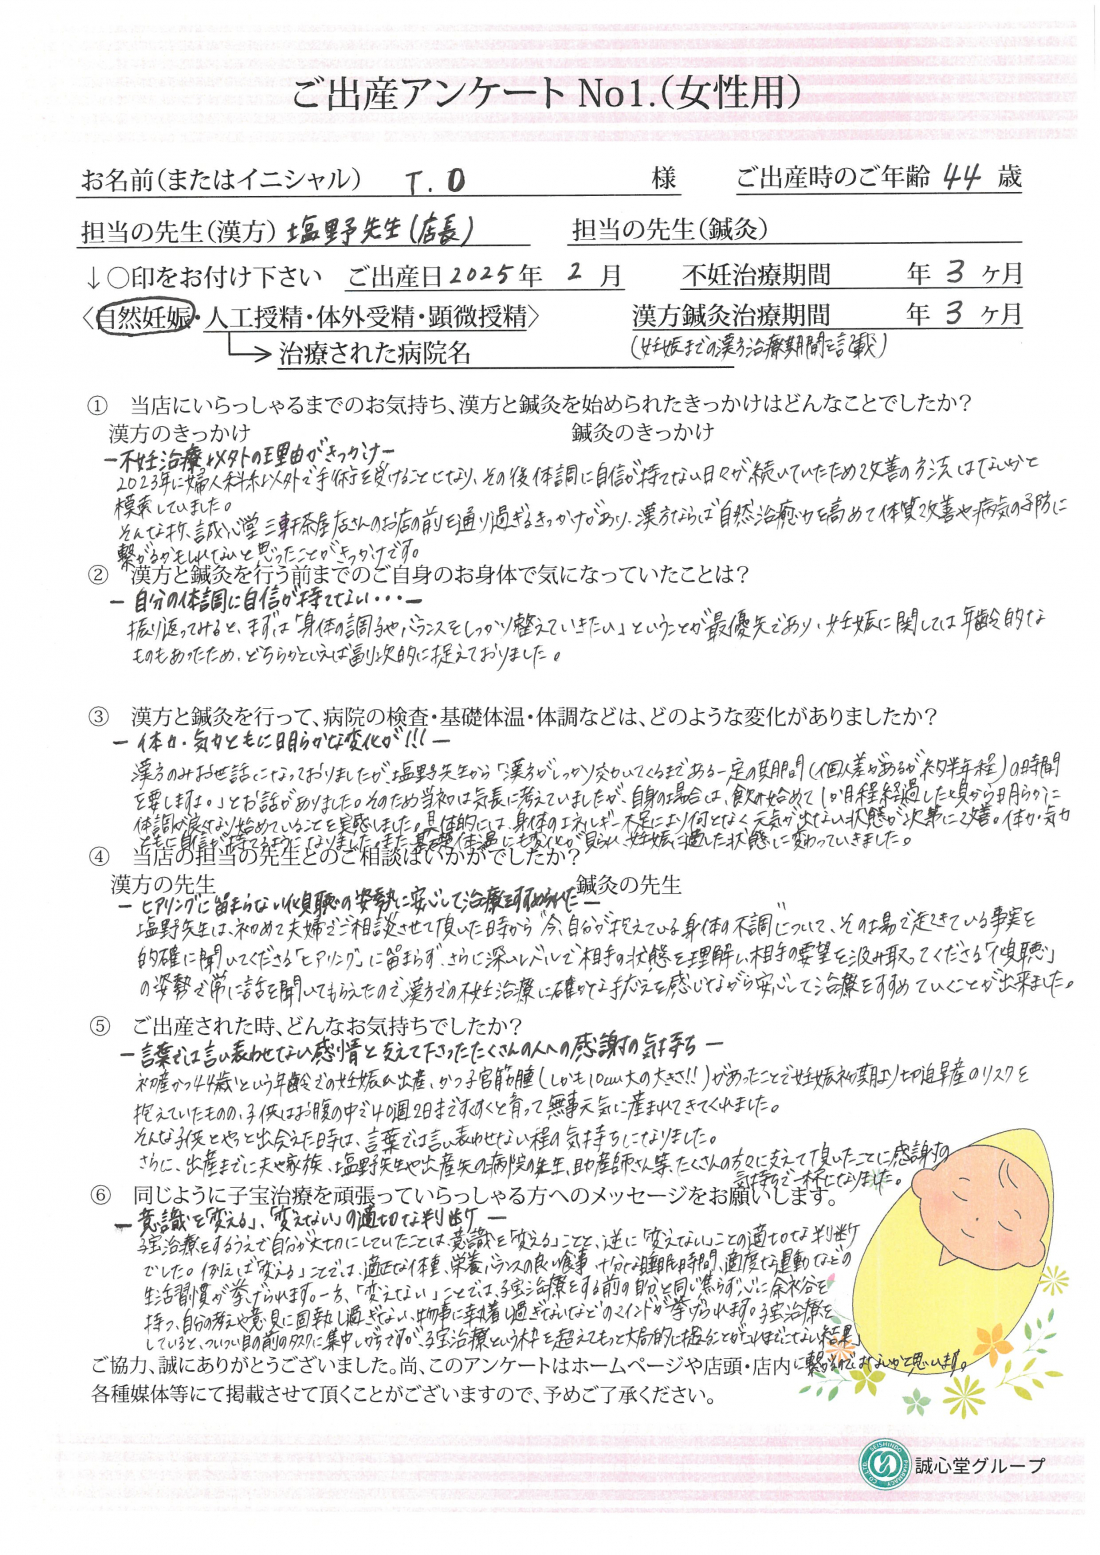 ご出産アンケート No1.(女性用)
お名前(またはイニシャル) T.O 様 ご出産時のご年齢 44 歳
担当の先生(漢方) 塩野先生(店長) 担当の先生(鍼灸)
↓○印をお付け下さい ご出産日 2025年 2 月 不妊治療期間 年 3 ヶ月
〈自然妊娠・人工授精・体外受精・顕微授精〉 漢方鍼灸治療期間 年 3 ヶ月
治療された病院名 (妊娠までの漢方治療期間を記載)
① 当店にいらっしゃるまでのお気持ち、漢方と鍼灸を始められたきっかけはどんなことでしたか?
漢方のきっかけ 鍼灸のきっかけ
ー不妊治療以外の理由がきっかけー
2023年に婦人科系以外で手術を受けることになり、その後体調に自信が持てない日々が続いていたため改善の方法はないかと
模索していました。
そんな折、誠心堂三軒茶屋店さんのお店の前を通り過ぎるきっかけがあり、漢方ならば自然治癒力を高めて体質改善や病気の予防に
繋がるかもしれないと思ったことがきっかけです。
② 漢方と鍼灸を行う前までのご自身のお身体で気になっていたことは?
ー自分の体調に自信が持てない・・・ー
振り返ってみると、まずは「身体の調子やバランスをしっかり整えていきたい」ということが最優先であり、妊娠に関しては年齢的な
ものもあったため、どちらかといえば副次的に捉えておりました。
③ 漢方と鍼灸を行って、病院の検査・基礎体温・体調などは、どのような変化がありましたか?
ー体力・気力ともに明らかな変化が!!!ー
漢方のみお世話になっておりましたが、塩野先生から「漢方がしっかり効いてくるまである一定の期間(個人差があるが約半年程)の時間
を要しますよ。」とお話がありました。そのため当初は気長に考えていましたが、自身の場合は、飲み始めて1か月程経過した頃から明らかに
体調が良くなり始めていることを実感しました。具体的には、身体のエネルギー不足により何となく元気が出ない状態が次第に改善。体力・気力
ともに自信が持てるようになりました。また基礎体温にも変化が見られ、妊娠に適した状態に変わっていきました。
④ 当店の担当の先生とのご相談はいかがでしたか?
漢方の先生 鍼灸の先生
ーヒアリングに留まらない傾聴の姿勢に安心して治療をすすめられたー
塩野先生は、初めて夫婦でご相談させて頂いた時から「今、自分が抱えている身体の不調」について、その場で起きている事実を
的確に聞いてくださる「ヒアリング」に留まらず、さらに深いレベルで相手の状態を理解し相手の要望を汲み取ってくださる「傾聴」
の姿勢で常に話を聞いてもらえたので漢方での不妊治療に確かな手応えを感じながら安心して治療をすすめていくことが出来ました。
⑤ ご出産された時、どんなお気持ちでしたか?
ー言葉では言い表わせない感情と支えて下さったたくさんの人への感謝の気持ちー
初産かつ44歳という年齢での妊娠&出産、かつ子宮筋腫(しかも10cm大の大きさ!!)があったことで妊娠初期より切迫早産のリスクを
抱えていたものの、子供はお腹の中で40週2日まですくすくと育って無事元気に産まれてきてくれました。
そんな子供とやっと出会えた時は、言葉では言い表わせない程の気持ちになりました。
さらに、出産までに夫や家族、塩野先生や出産先の病院の先生、助産師さん等、たくさんの方々に支えて頂いたことに感謝の
気持ちで一杯になりました。
⑥ 同じように子宝治療を頑張っていらっしゃる方へのメッセージをお願いします。
ー意識を「変える」、「変えない」の適切な判断ー
子宝治療をするうえで自分が大切にしていたことは、意識を「変える」ことと、逆に「変えない」ことの適切な判断
でした。例えば「変える」ことでは、適正な体重、栄養バランスの良い食事、十分な睡眠時間、適度な運動などの
生活習慣が挙げられます。一方、「変えない」ことでは、子宝治療をする前の自分と同じ焦らず、心に余裕を
持つ、自分の考えや意見に固執し過ぎない、物事に執着し過ぎないなどのマインドが挙げられます。子宝治療を
していると、ついつい目の前のタスクに集中しがちですが、子宝治療という枠を超えてもっと大局的に捉えることがこれまでにない結果
に繋がるのではないかと思います。
ご協力、誠にありがとうございました。尚、このアンケートはホームページや店頭・店内
各種媒体等にて掲載させて頂くことがございますので、予めご了承ください。
誠心堂グループ